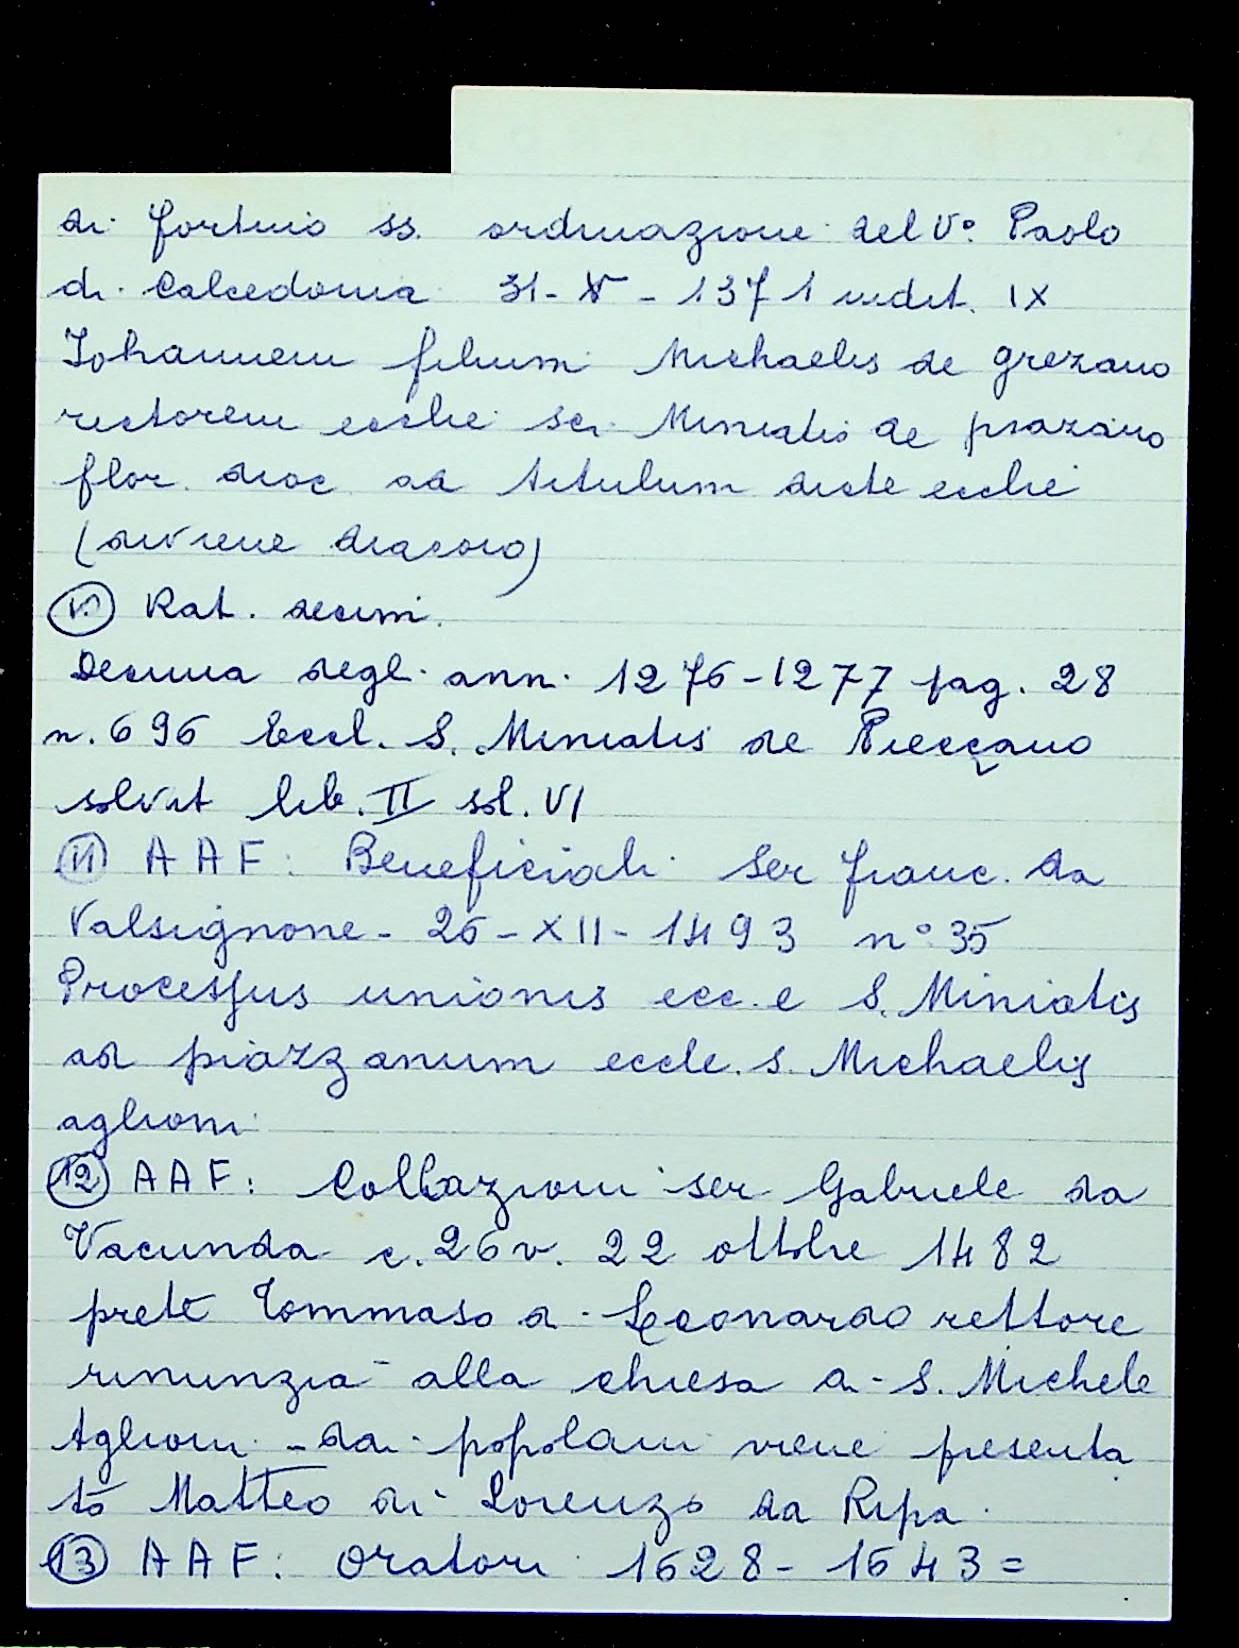 di fortuio ss. ordinazione del V° Paolo
di Calcedonia 31-X-1371 indit. IX
Iohannem filium Michaelis de grezano
rectorem ecclie sci Miniatis de piazano
flor. dioc ad titulum dicte ecclie
(diviene diacono)
Rat. decim.
Decima degli ann. 1276-1277 pag. 28
n. 696 Eccl. S. Miniatis de Pieczano
solvit lib. II sol. VI
11 AAF: Beneficiali Ser franc. da
Valsignone - 26-XII-1493 n° 35
Processus unionis ecc.e S. Miniatis
ad piazzanum eccle. s. Michaelis
aglioni
12 AAF: Collazioni ser Gabriele da
Vacunda c. 26v. 22 ottobre 1482
prete Tommaso di Leonardo rettore
rinunzia alla chiesa di S. Michele
Aglioni - dai popolani viene presenta
to Matteo di Lorenzo da Ripa.
13 AAF: Oratori 1628-1643 =